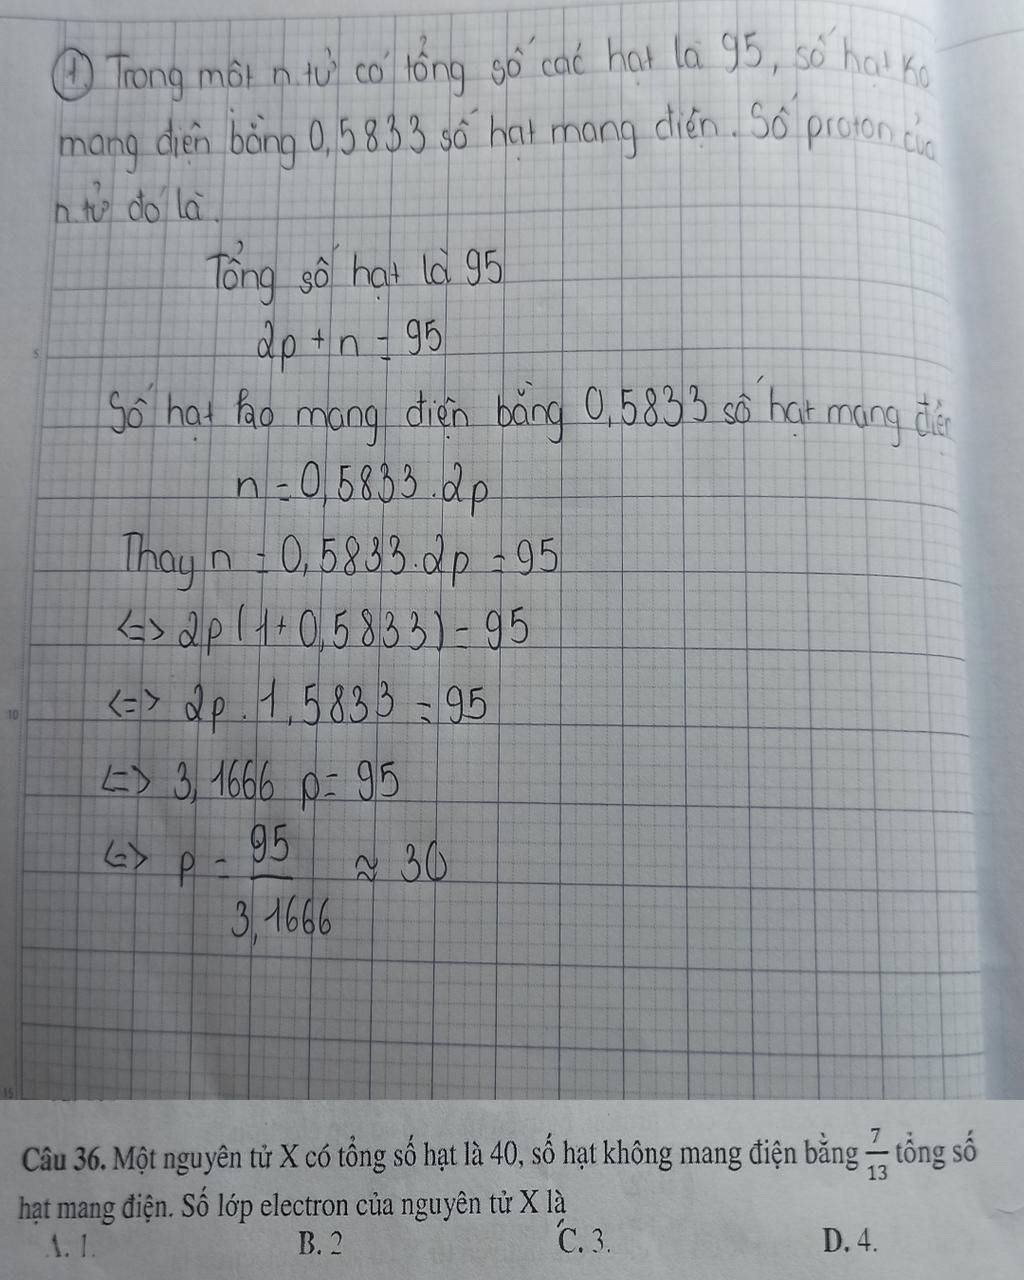 ① Trong một n.tử có tổng số các hạt là 95, số hạt ko
mang điện bằng 0,5833 số hạt mang điện. Số proton của
n.tử đó là.
Tổng số hạt là 95
2p + n = 95
5
Số hạt ko mang điện bằng 0,5833 số hạt mang điện
n = 0,5833.2p
Thay n = 0,5833.2p = 95
<=> 2p (1 + 0,5833) = 95
<=> 2p . 1,5833 = 95
10
<=> 3,1666 p = 95
<=> p = 95/3,1666 ≈ 30
15
Câu 36. Một nguyên tử X có tổng số hạt là 40, số hạt không mang điện bằng 7/13 tổng số
hạt mang điện. Số lớp electron của nguyên tử X là
A. 1. B. 2 C. 3. D. 4.